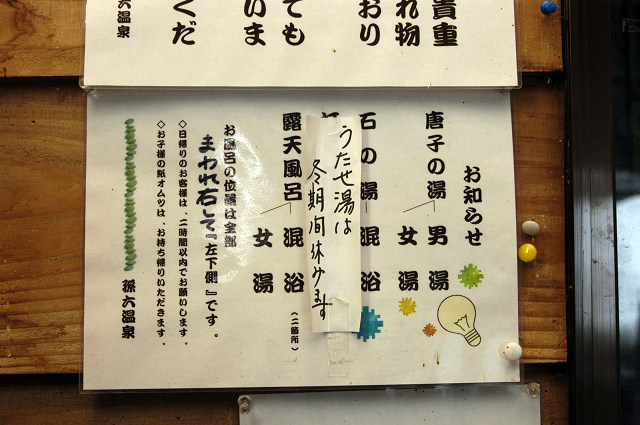 貴重
れ物
おり
ても
いま
くだ
六温泉
お知らせ
唐子の湯 男湯
女湯
石の湯 混浴
うたせ湯は
冬期間休みます
露天風呂 混浴
(二箇所)
女湯
お風呂の位置は全部
まわれ右して『左下側』です。
◇日帰りのお客様は、二時間以内でお願いします。
◇お子様の紙オムツは、お持ち帰りいただきます。
孫六温泉